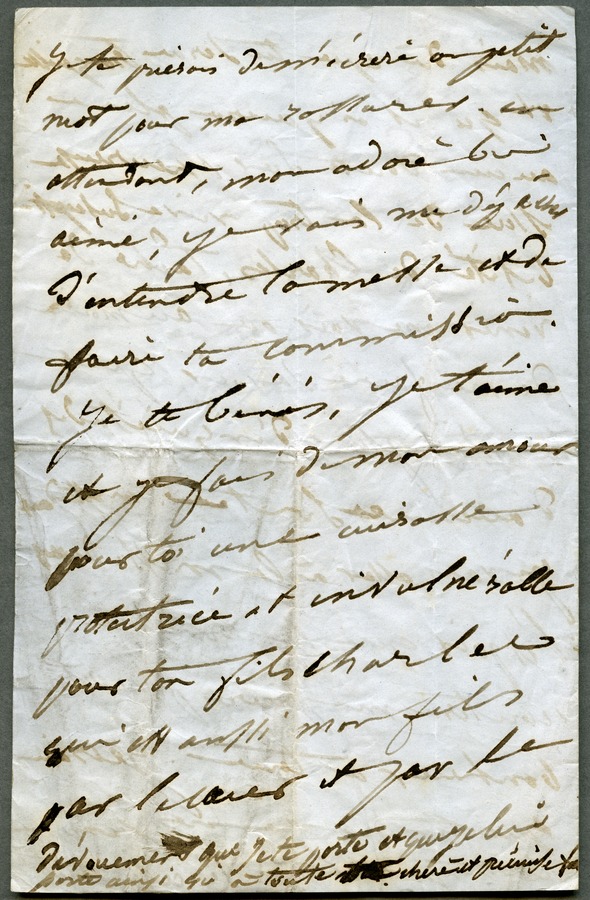 Je te prierais de m'écrire un petit
mot pour me rassurer. en
attendant, mon adoré bien
aimé, je vais me dépêcher
d'entendre la messe et de
faire ta commission.
Je te bénis, je t'aime
et je fais de mon amour
pour toi une cuirasse
protectrice et invulnérable
pour ton fils Charles
qui est aussi mon fils
par le cœur et par le
dévouement que je te porte et que je lui
porte ainsi qu'à toute chère et